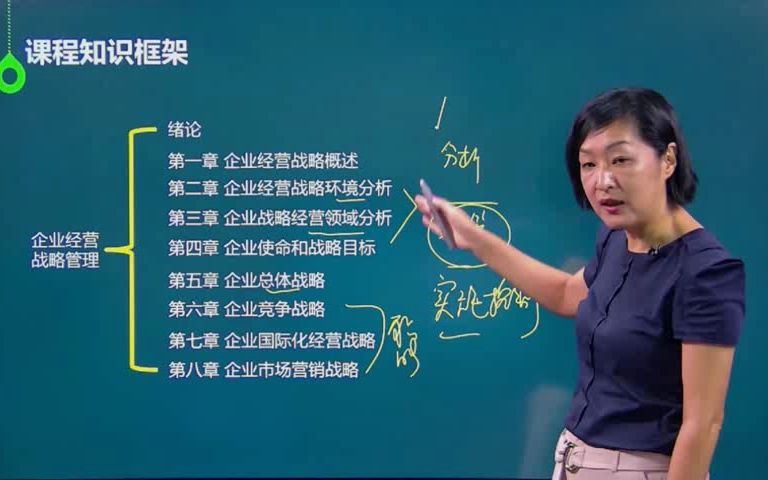 课程知识框架
企业经营
战略管理
绪论
第一章 企业经营战略概述
第二章 企业经营战略环境分析
第三章 企业战略经营领域分析
第四章 企业使命和战略目标
第五章 企业总体战略
第六章 企业竞争战略
第七章 企业国际化经营战略
第八章 企业市场营销战略
1
分析
实施